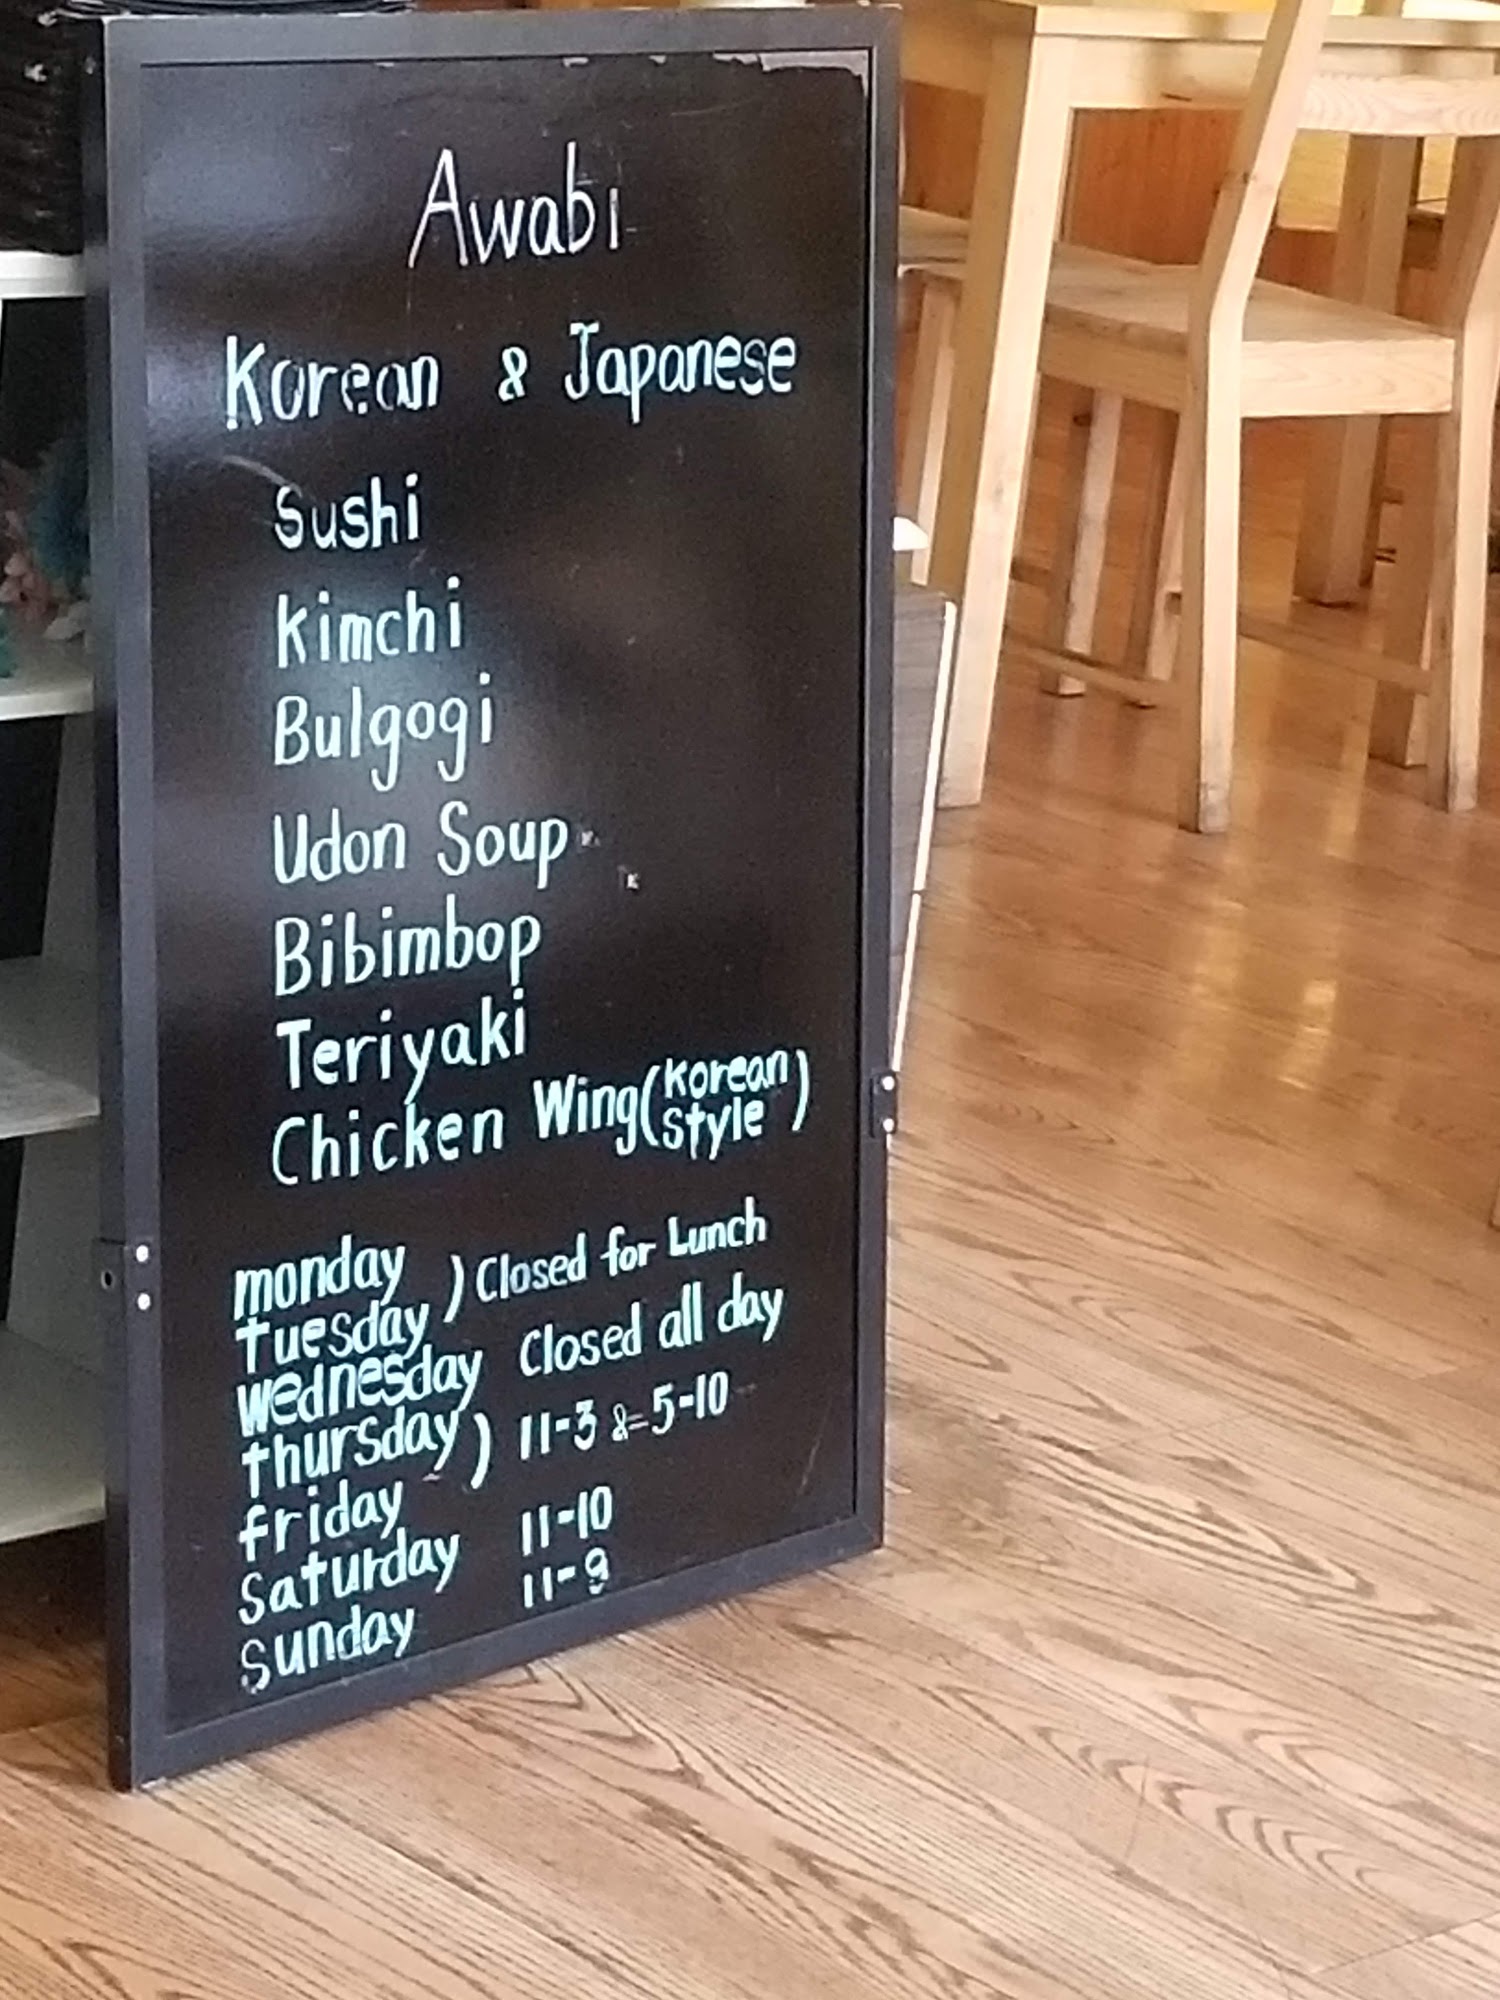 Awabi
Korean & Japanese
Sushi
Kimchi
Bulgogi
Udon Soup
Bibimbop
Teriyaki
Chicken Wing (Korean Style)
monday
tuesday ) Closed for Lunch
wednesday Closed all day
thursday
friday ) 11-3 & 5-10
saturday 11-10
sunday 11-9